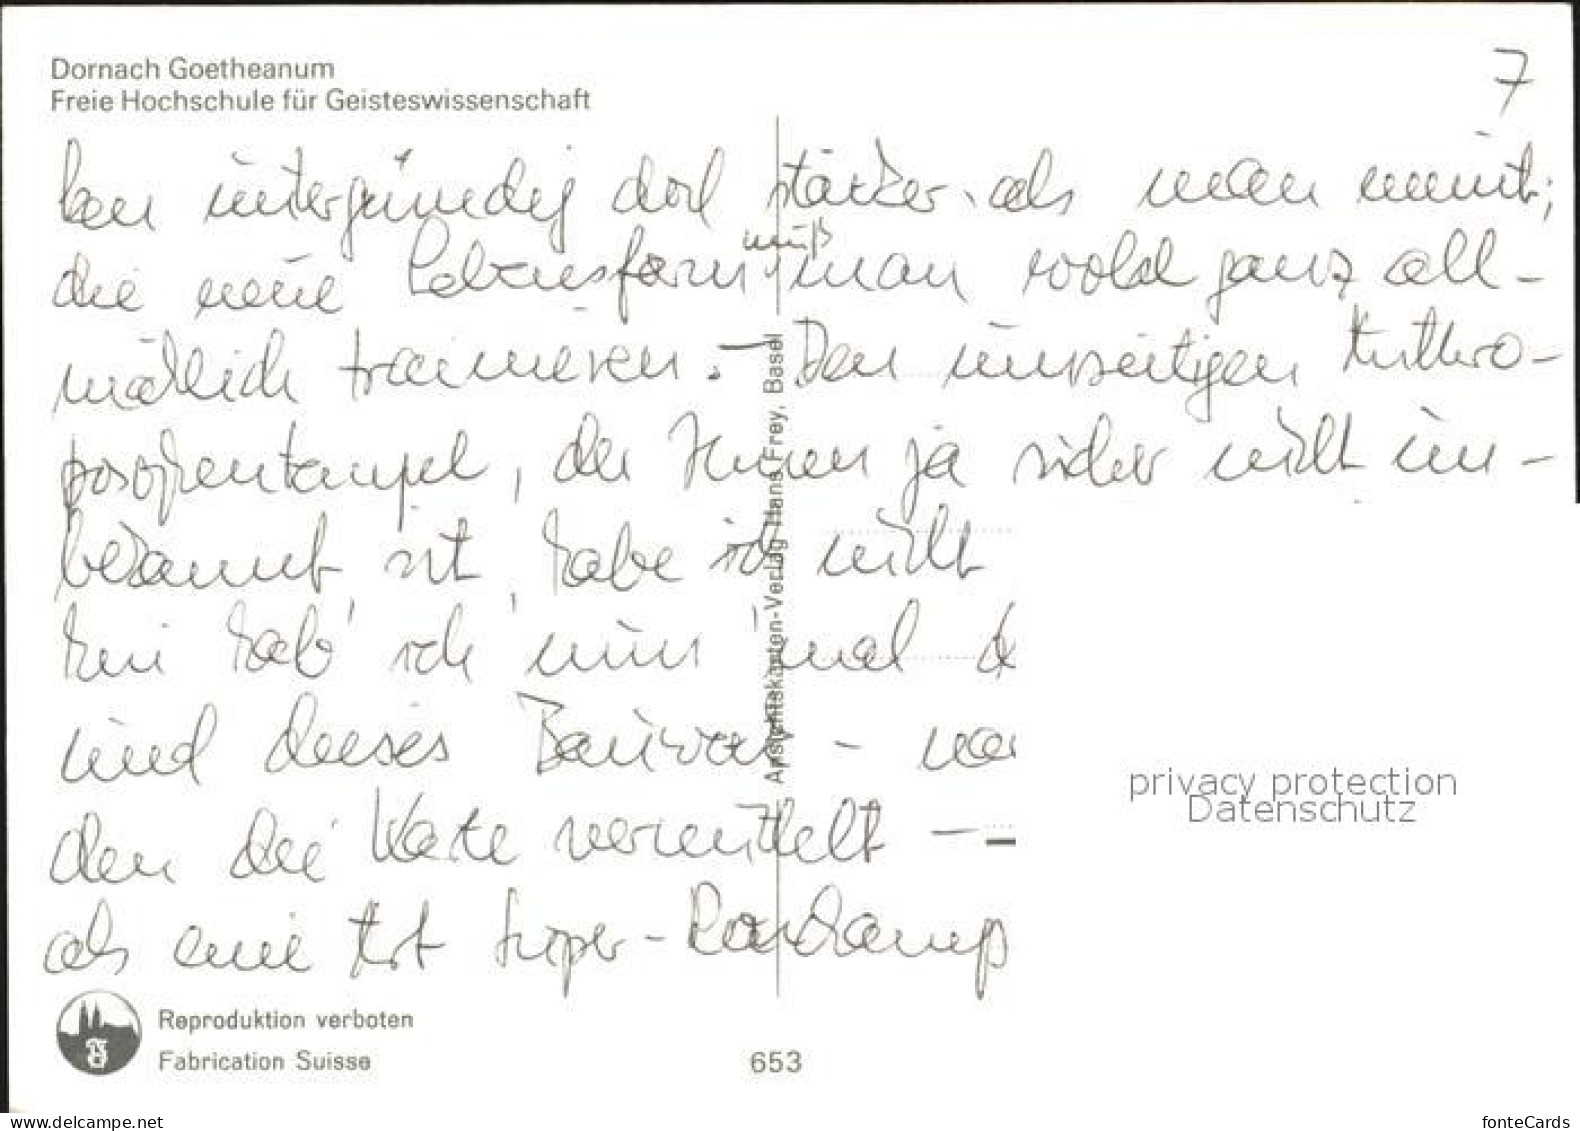 Dornach Goetheanum
Freie Hochschule für Geisteswissenschaft
7
ken untergründig doch stärker als man meint;
die neue Lebensform muß man wohl ganz all-
mählich trainieren. – Den einzeitigen Anthro-
posophentempel, der Ihnen ja sicher nicht un-
bekannt ist, habe ich nicht
hab' ich nun mal
und dieses Bauwerk –
den die Karte vermittelt –
als eine Art Super-Ronchamp
Ansichtskarten-Verlag Hans Frey, Basel
privacy protection
Datenschutz
Reproduktion verboten
Fabrication Suisse
653
https://www.delcampe.net
fonteCards